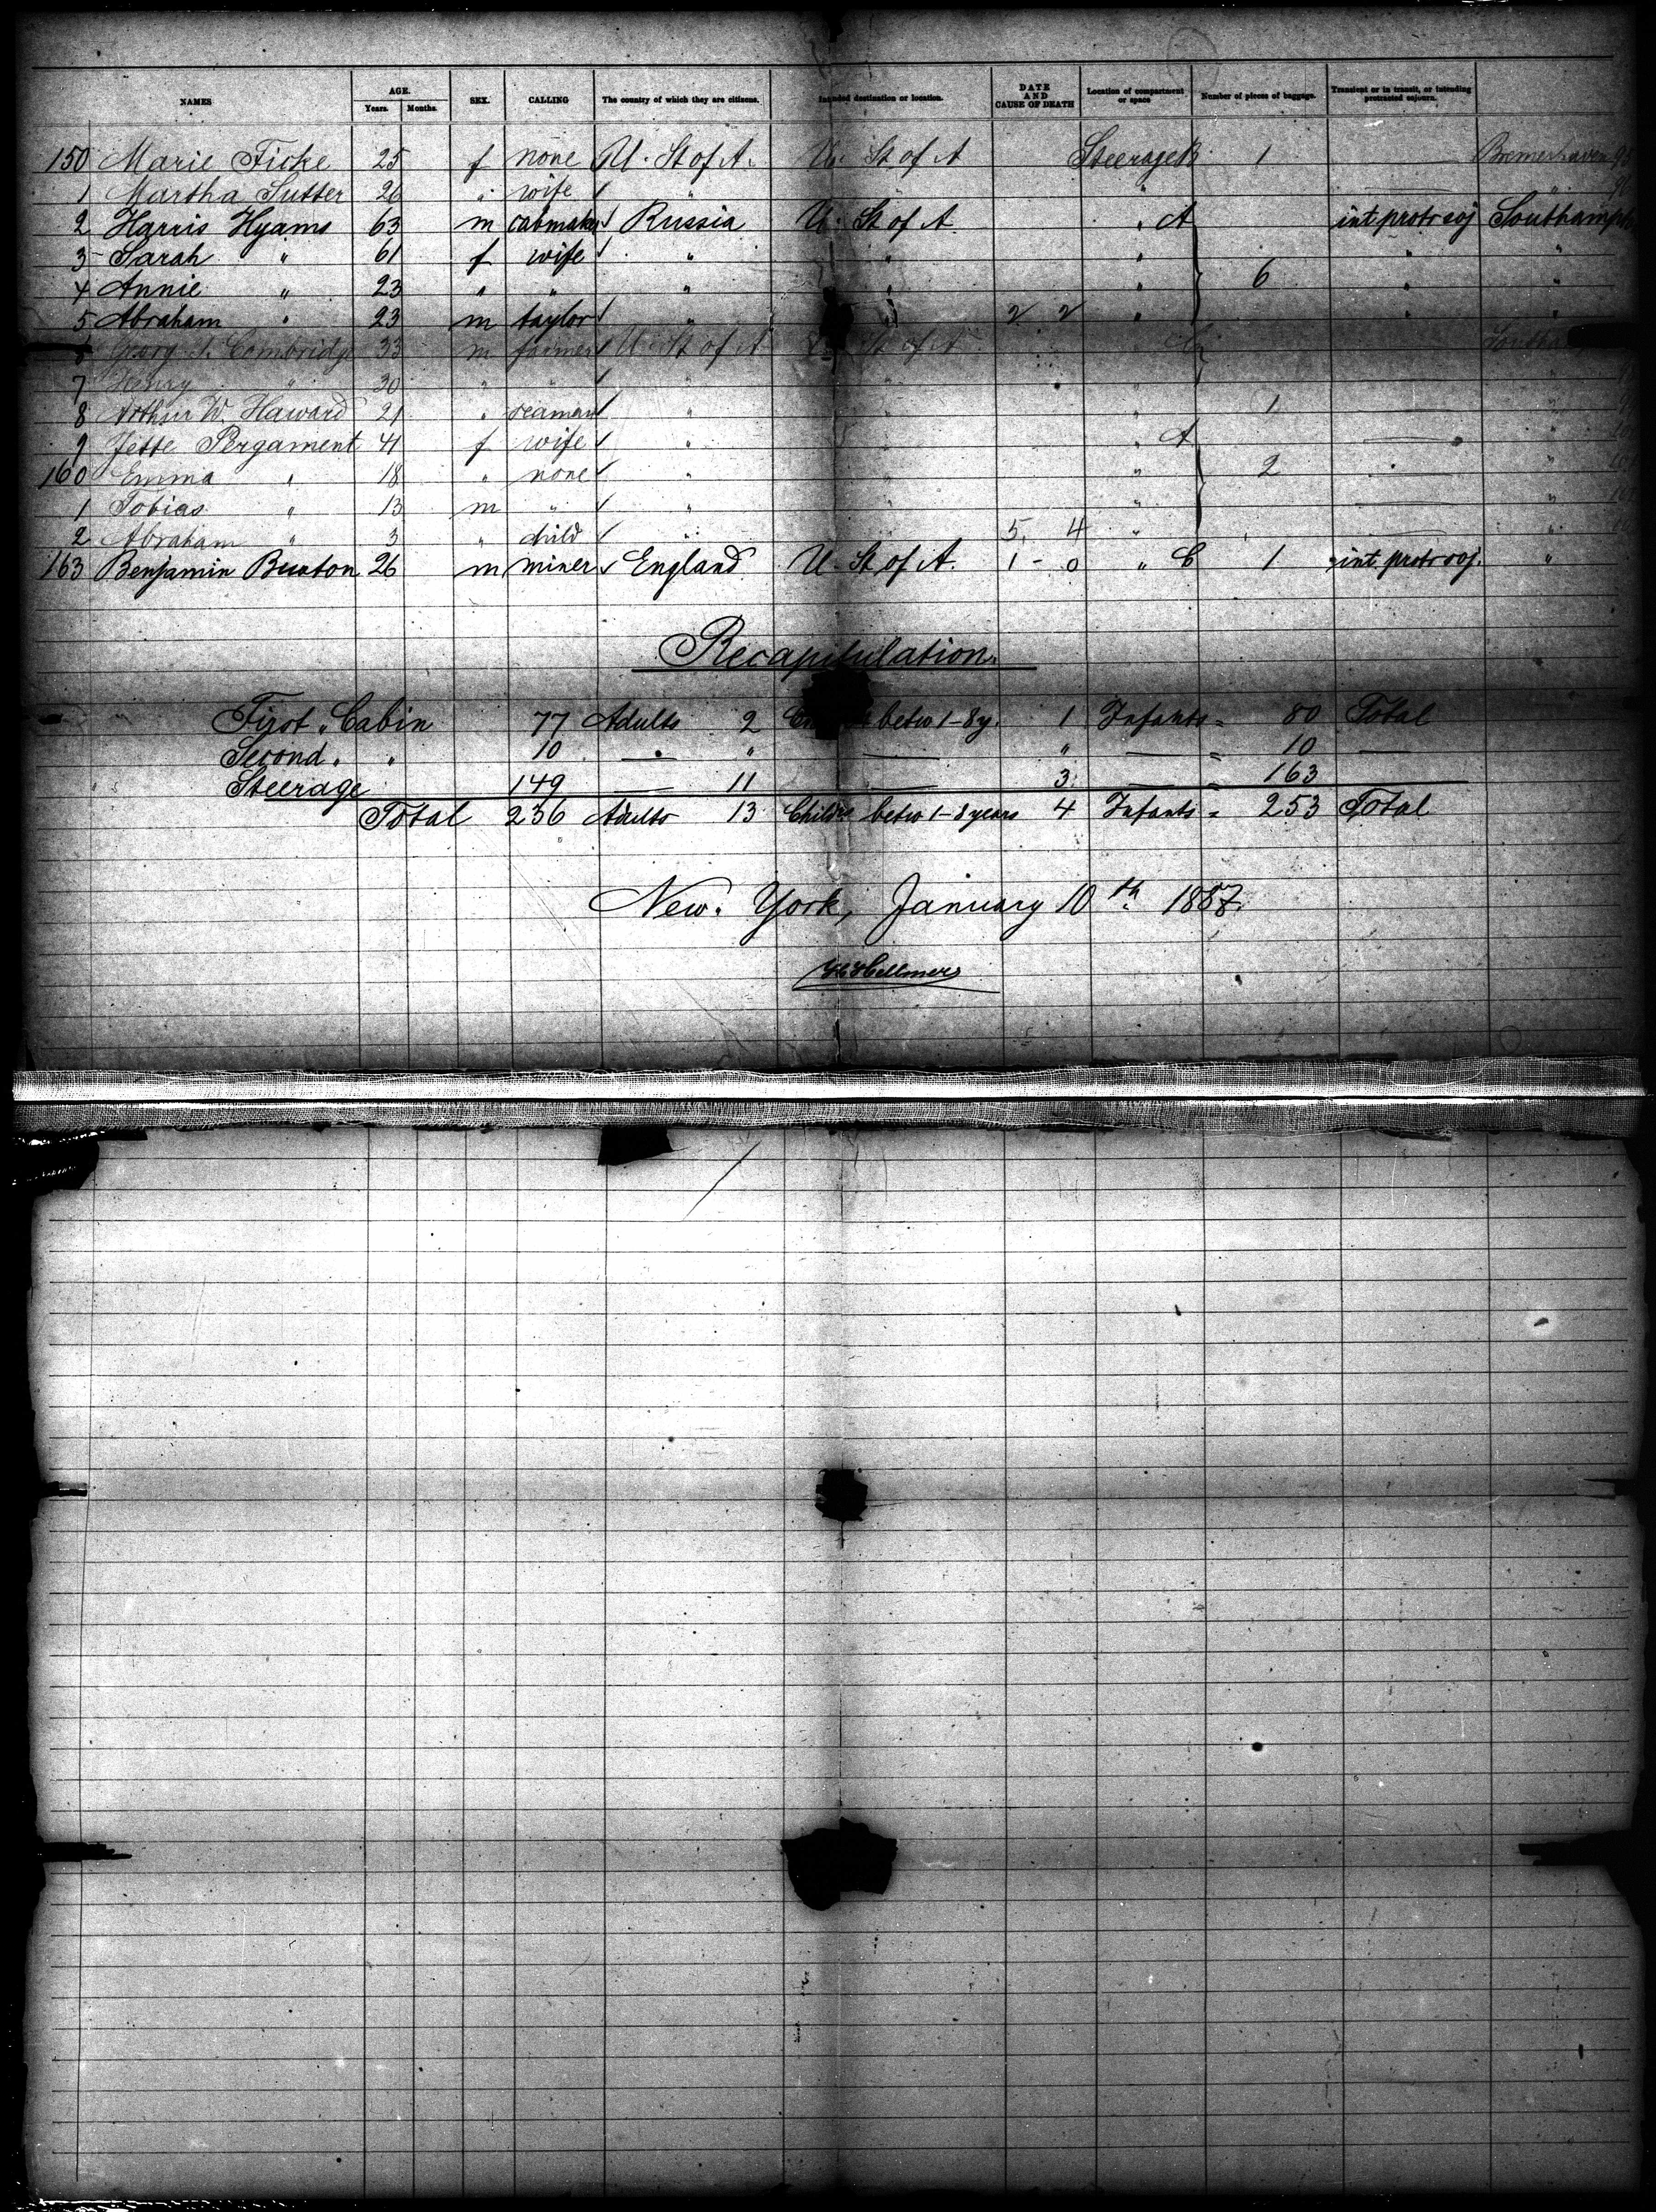 NAMES AGE. Years. Months. SEX. CALLING The country of which they are citizens. Intended destination or location. DATE AND CAUSE OF DEATH Location of compartment or space Number of pieces of baggage. Transient or in transit, or intending protracted sojourn.
150 Marie Ficke 25 f none U. St of A. U. St of A Steerage B. 1 — Bremerhaven 95
1 Martha Sutter 26 " wife " —
2 Harris Hyams 63 m cabmaker Russia U. St of A. " A int protr soj Southampton
3 Sarah " 61 f wife " " " " "
4 Annie " 23 " " " " " 6 " "
5 Abraham " 23 m taylor " 2 2 " " "
6 Georg Cambridge 33 m farmer U. St of A St of A
7 Henry " 30 " " " "
8 Arthur W. Haward 21 " seaman " " " 1 "
9 Jette Pergament 41 f wife " " " A — "
160 Emma " 18 " none " " " 2 — "
1 Tobias " 13 m " " " " — "
2 Abraham " 3 " child " 5, 4 " — "
163 Benjamin Buxton 26 m miner England U. St of A. 1 - 0 " C 1 int. protr soj. "
Recapitulation.
First Cabin 77 Adults 2 betw 1-8 y. 1 Infants = 80 Total
Second " " 10 — " — " — = 10 —
Steerage 149 — 11 — 3 — = 163 —
Total 236 Adults 13 Childr betw 1-8 years 4 Infants = 253 Total
New. York, January 10th. 1887.
Hellmers